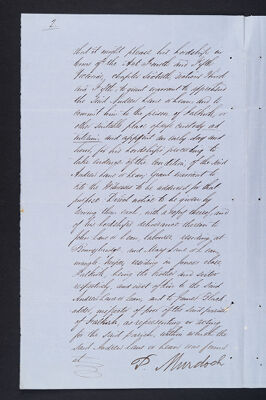 2
that it might please his Lordship in
terms of the Act Fourth and Fifth
Victoria, chapter Sixtieth, section Third
and Fifth, to grant warrant to apprehend
the said Andrew Laws or Lean, and to
commit him to the prison of Falkirk, or
other suitable place of safe custody ad
interim, and appoint an early day and
hour for his Lordship's proceeding to
take evidence of the condition of the said
Andrew Laws or Lean; Grant warrant to
cite the Witnesses to be adduced for that
purpose; Direct notice to be given by
serving them each, with a copy hereof, and
of his Lordship's deliverance thereon to
John Laws or Lean, labourer, residing at
and Mary Laws or Lean,
residing in James' close
Falkirk, being the brother and sister
respectively, and next of kin to the said
Andrew Laws or Lean, and to James
inspector of poor of the said parish
of Falkirk, as representing or acting
for the said parish, within which the
said Andrew Laws or Lean was found
at
P. Murdoch